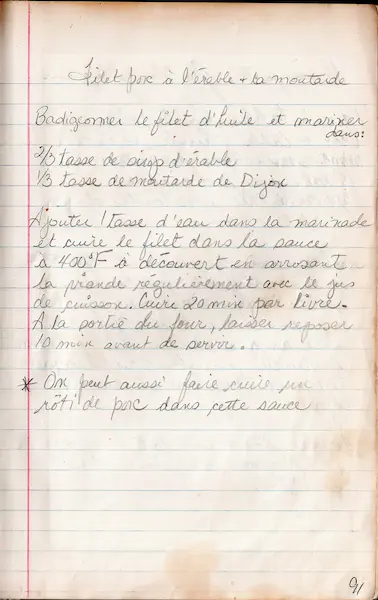 Filet porc à l'érable + la moutarde
Badigeonner le filet d'huile et mariner
dans:
2/3 tasse de sirop d'érable
1/3 tasse de moutarde de Dijon
Ajouter 1 tasse d'eau dans la marinade
et cuire le filet dans la sauce
à 400°F à découvert en arrosant
la viande régulièrement avec le jus
de cuisson. Cuire 20 min par livre.
À la sortie du four, laisser reposer
10 min avant de servir.
* On peut aussi faire cuire un
rôti de porc dans cette sauce
91